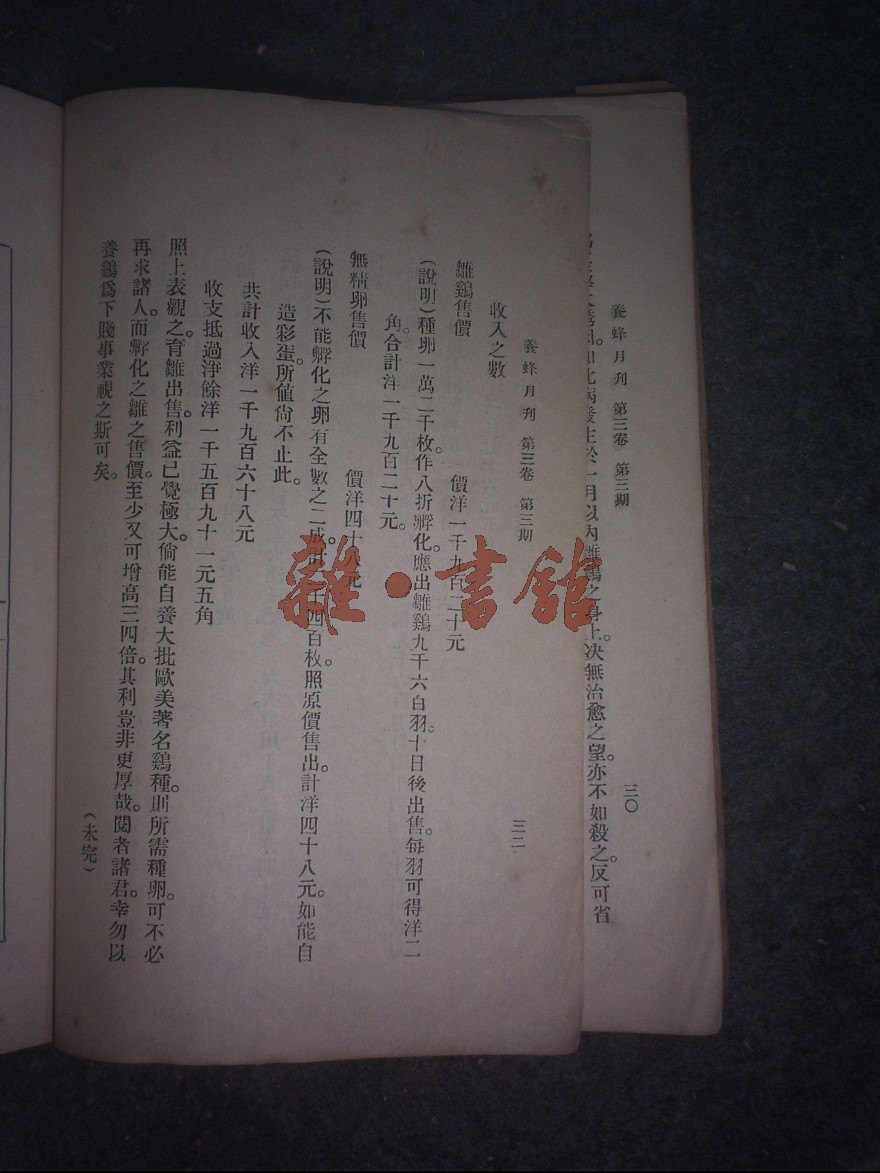 養蜂月刊 第三卷 第三期 三〇
如此病發生於一月以內雛鷄之身上。决無治愈之望。亦不如殺之。反可省
養蜂月刊 第三卷 第三期 三二
收入之數
雛鷄售價 價洋一千九百二十元
(說明)種卵一萬二千枚。作八折孵化。應出雛鷄九千六百羽。十日後出售。每羽可得洋二
角。合計洋一千九百二十元。
無精卵售價 價洋四十八元
(說明)不能孵化之卵有全數之二成。計二千四百枚。照原價售出。計洋四十八元。如能自
造彩蛋。所值尙不止此。
共計收入洋一千九百六十八元
收支抵過淨餘洋一千五百九十一元五角
照上表觀之。育雛出售。利益已覺極大。倘能自養大批歐美著名鷄種。則所需種卵。可不必
再求諸人。而孵化之雛之售價。至少又可增高三四倍。其利豈非更厚哉。閱者諸君。幸勿以
養鷄爲下賤事業視之斯可矣。
(未完)
雜·書館